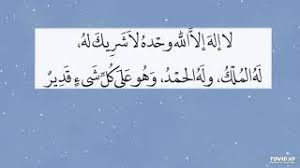 لَا إِلَهَ إِلَّا اللَّهُ وَحْدَهُ لَا شَرِيكَ لَهُ،
لَهُ الْمُلْكُ، وَلَهُ الْحَمْدُ، وَهُوَ عَلَى كُلِّ شَيْءٍ قَدِيرٌ
TOVID.IO